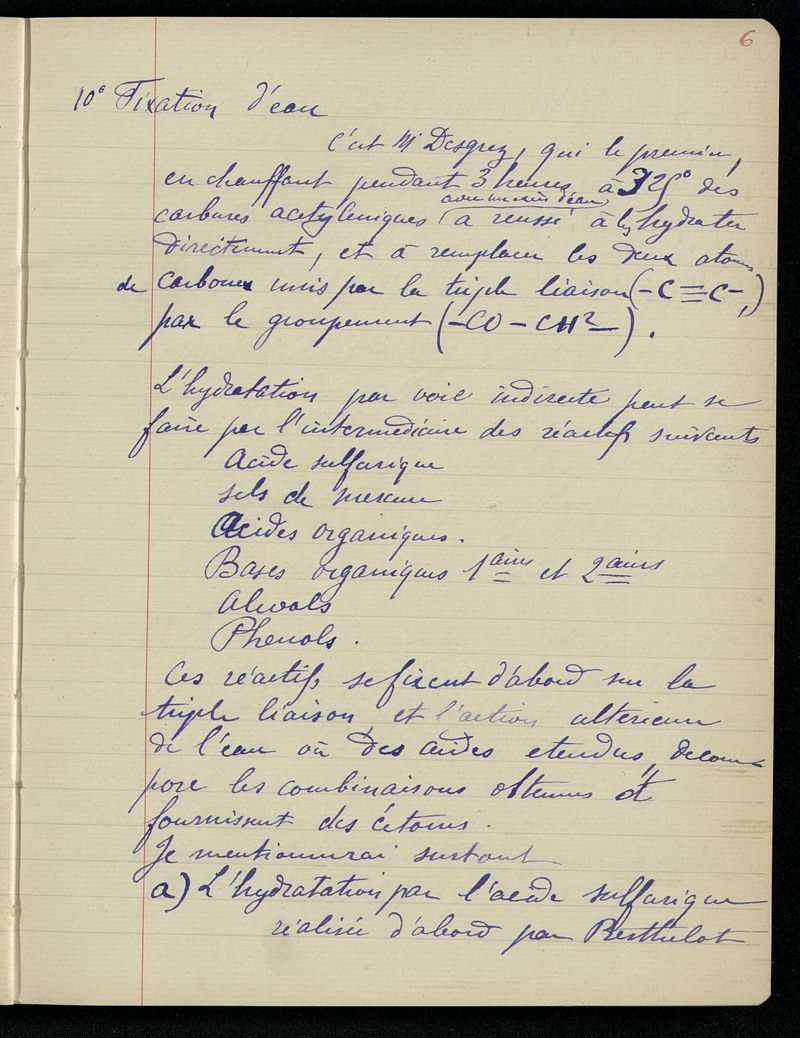 6
10° Fixation d'eau
C'est Mr Desgrez, qui le premier,
en chauffant pendant 3 heures à 325° des
avec un excès d'eau,
carbures acetyleniques a reussi à les hydrater
directement, et à remplacer les deux atomes
de carbone unis par la triple liaison (-C≡C-,)
par le groupement (-CO-CH²-).
L'hydratation par voie indirecte peut se
faire par l'intermédiaire des réactifs suivants
Acide sulfurique
sels de mercure
Acides organiques.
Bases organiques 1aires et 2aires
Alcools
Phenols.
Ces réactifs se fixent d'abord sur la
triple liaison, et l'action ultérieure
de l'eau où des acides etendus, decom-
pose les combinaisons obtenues et
fournissent des cétones.
Je mentionnerai surtout
a) L'hydratation par l'acide sulfurique
réalisée d'abord par Berthelot